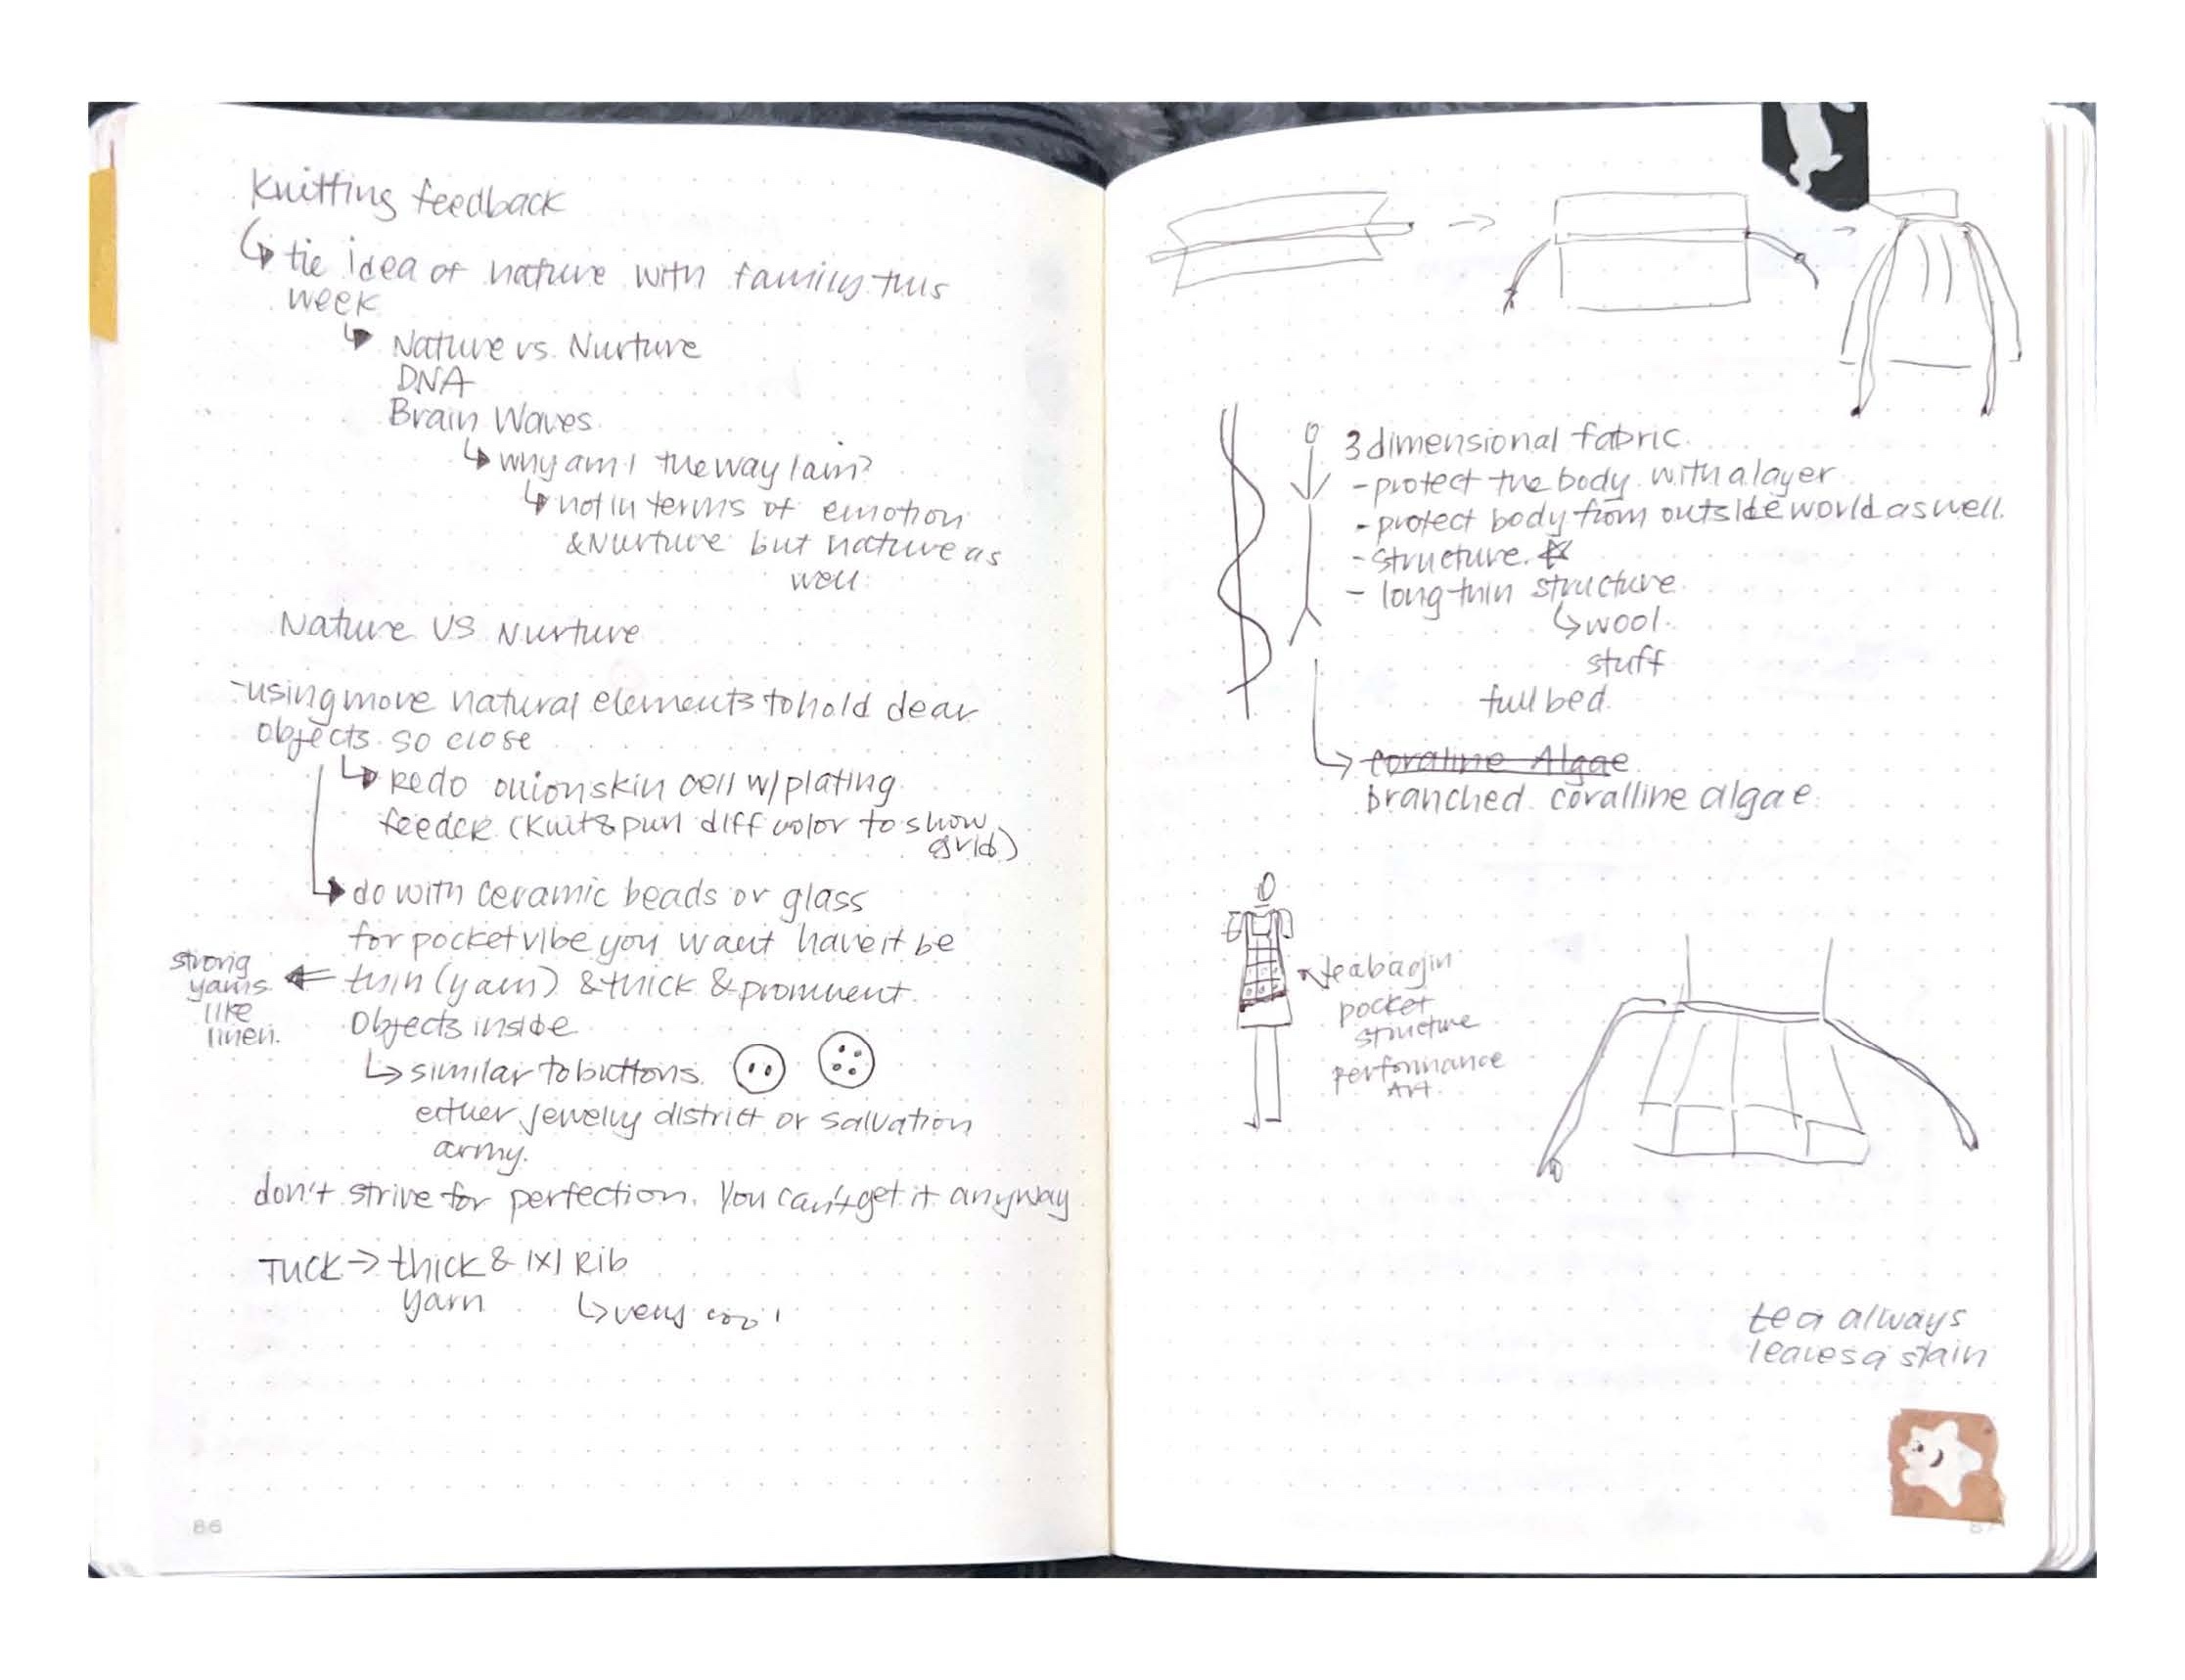 Knitting feedback
tie idea of nature with family this
week
Nature vs. Nurture
DNA
Brain Waves
why am I the way I am?
not in terms of emotion
& Nurture but nature as
well.
Nature VS Nurture
-using more natural elements to hold dear
objects so close
Redo onion skin cell w/ plating
feeder (knit & purl diff color to show
grid)
do with ceramic beads or glass
for pocket vibe you want have it be
thin (yarn) & thick & prominent
objects inside
strong
yarns
like
linen.
similar to buttons.
either jewelry district or salvation
army.
don't strive for perfection. You can't get it anyway
TUCK → thick & 1x1 Rib
yarn
very cool
86
3 dimensional fabric.
- protect the body with a layer
- protect body from outside world as well.
- structure.
- long thin structure
wool
stuff
full bed
coraline Algae
branched coralline algae.
teabag in
pocket
structure
performance
Art.
tea always
leaves a stain